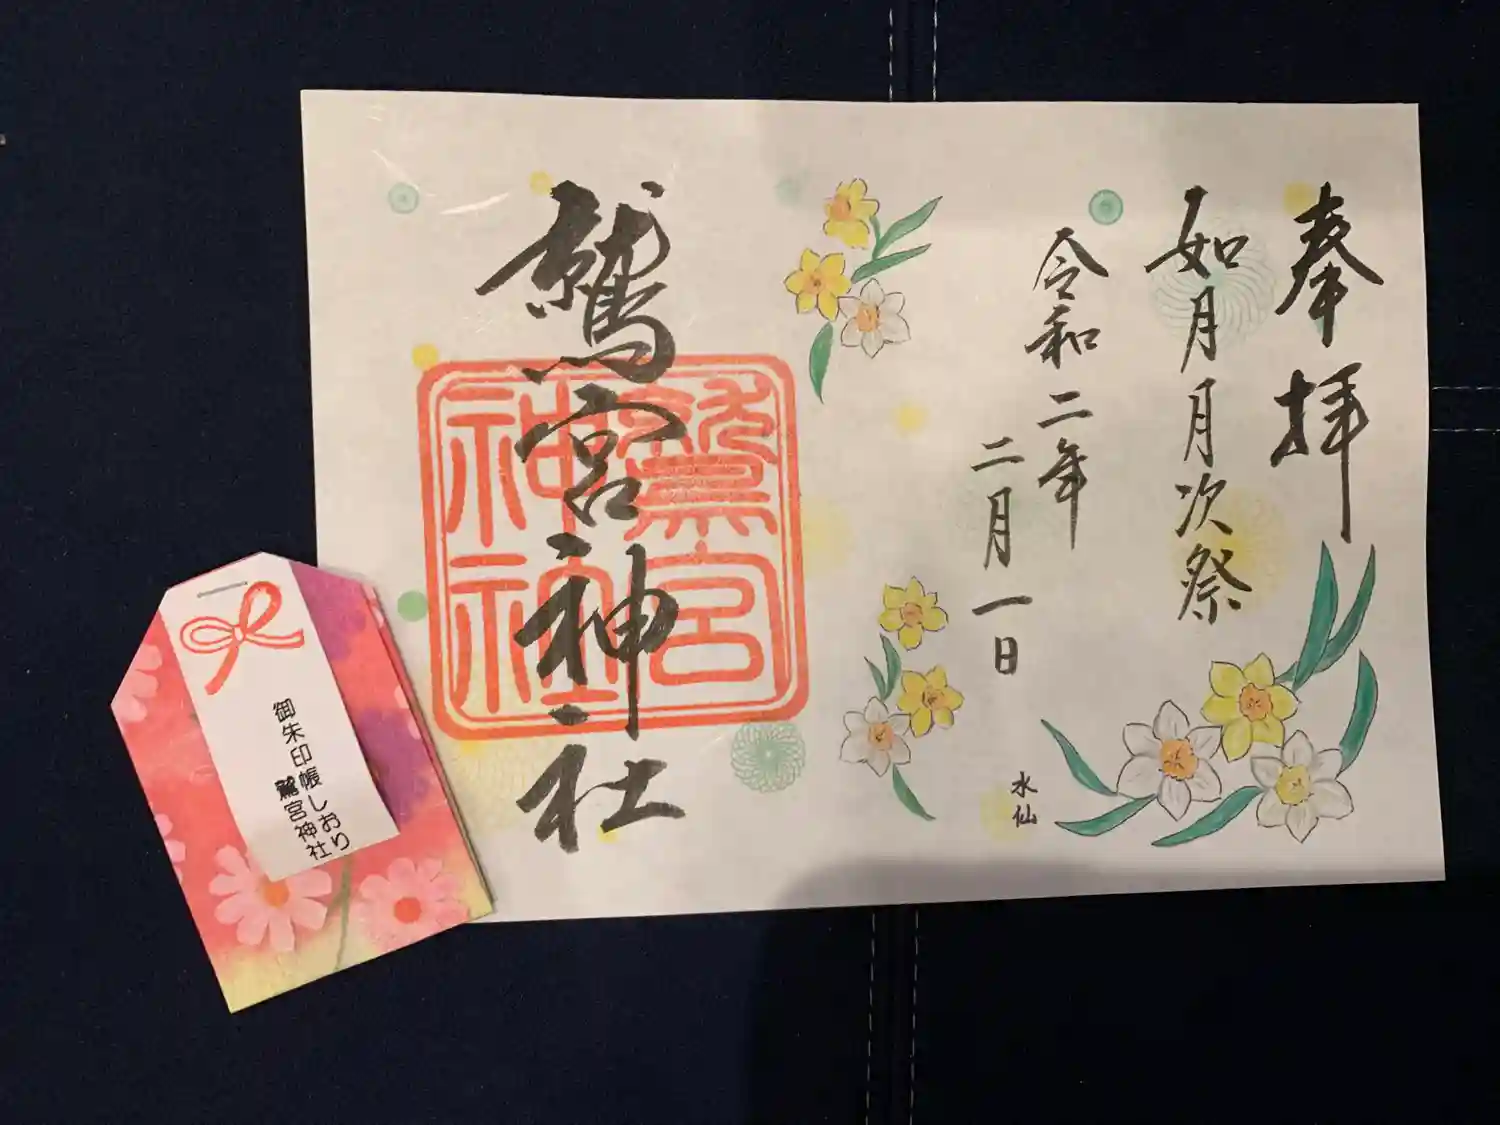 奉拝
如月月次祭
令和二年
二月一日
水仙
鷲宮神社
鷲宮
神社
御朱印帳しおり
鷲宮神社